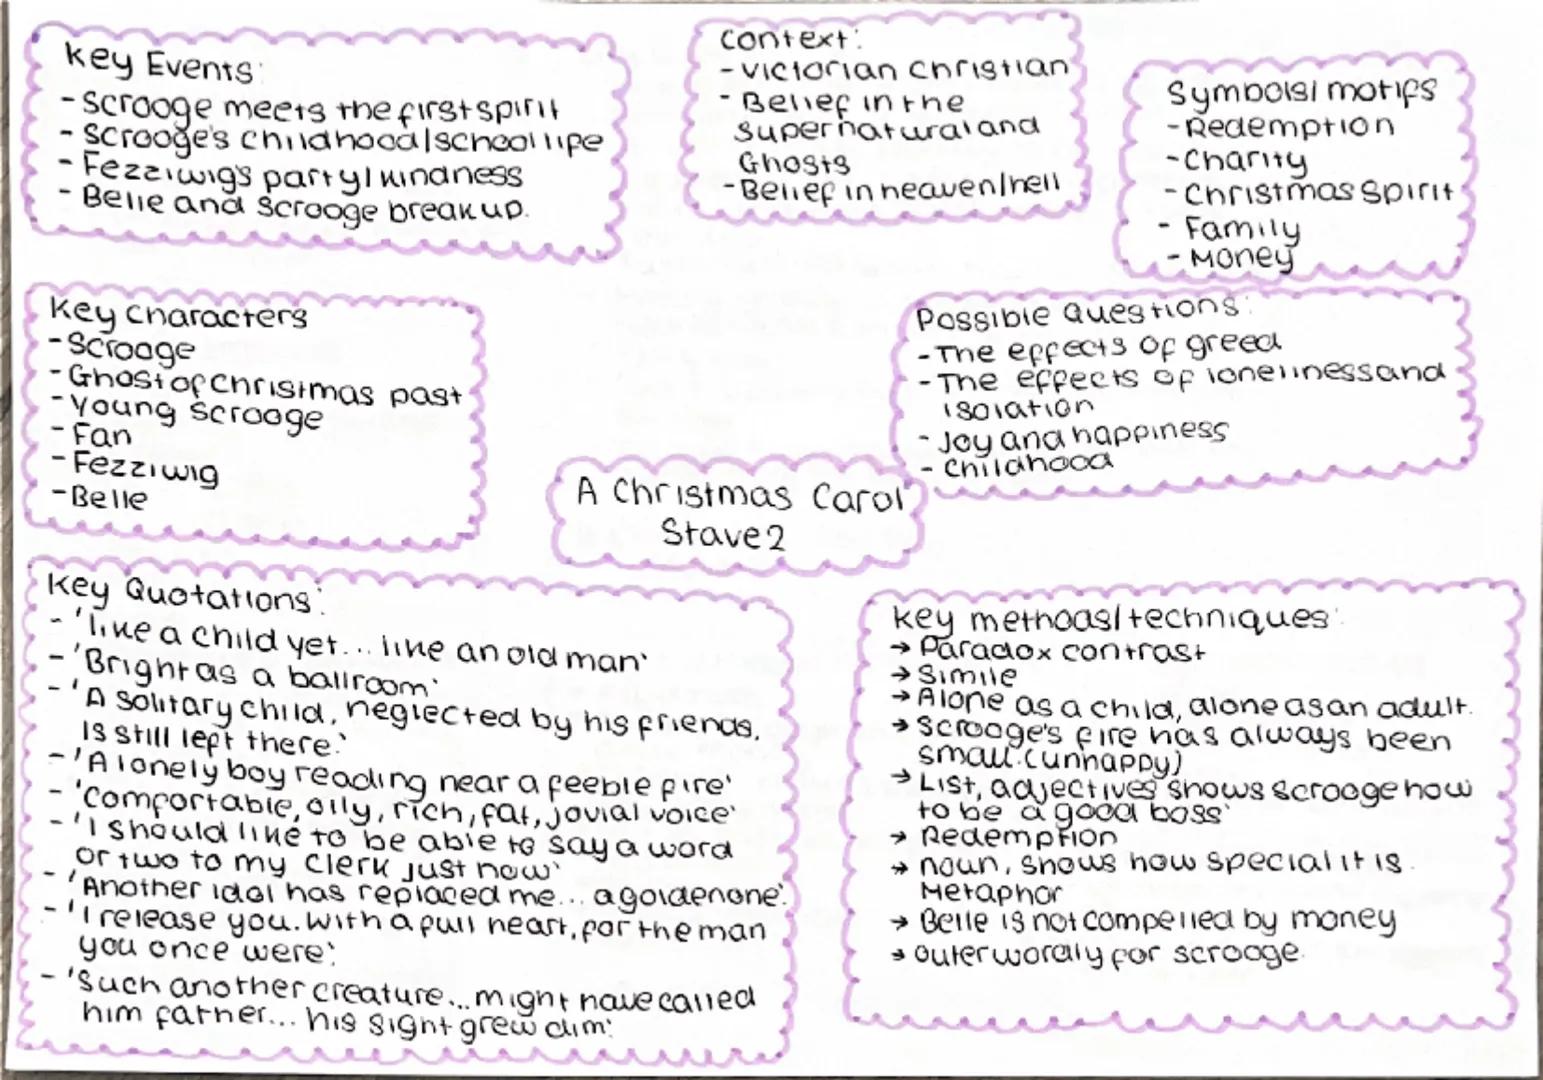 Key Events:
- Scrooge meets the first spirit
- Scrooge's childhood/school life
- Fezziwig's party/kindness
- Belle and Scrooge break up.
Context:
- Victorian Christian
- Belief in the
supernatural and
Ghosts
- Belief in heaven/hell
Symbols/motifs
- Redemption
- Charity
- Christmas Spirit
- Family
- Money
Key characters
- Scrooge
- Ghost of Christmas past
- Young Scrooge
- Fan
- Fezziwig
- Belle
Possible Questions:
- The effects of greed
- The effects of loneliness and
isolation
- Joy and happiness
- Childhood
A Christmas Carol
Stave 2
Key Quotations:
- 'like a child yet... like an old man'
- 'Bright as a ballroom'
- 'A solitary child, neglected by his friends,
is still left there.'
- 'A lonely boy reading near a feeble fire'
- 'Comfortable, oily, rich, fat, jovial voice'
- 'I should like to be able to say a word
or two to my clerk just now'
- 'Another idol has replaced me... a golden one'.
- 'I release you. With a full heart, for the man
you once were'.
- 'Such another creature... might have called
him father... his sight grew dim'.
Key methods/techniques:
→ Paradox contrast
→ Simile
→ Alone as a child, alone as an adult.
→ Scrooge's fire has always been
small. (unhappy)
→ List, adjectives shows Scrooge how
to be a 'good boss'
→ Redemption
→ noun, shows how special it is.
Metaphor
→ Belle is not compelled by money
→ outerwordly for scrooge.